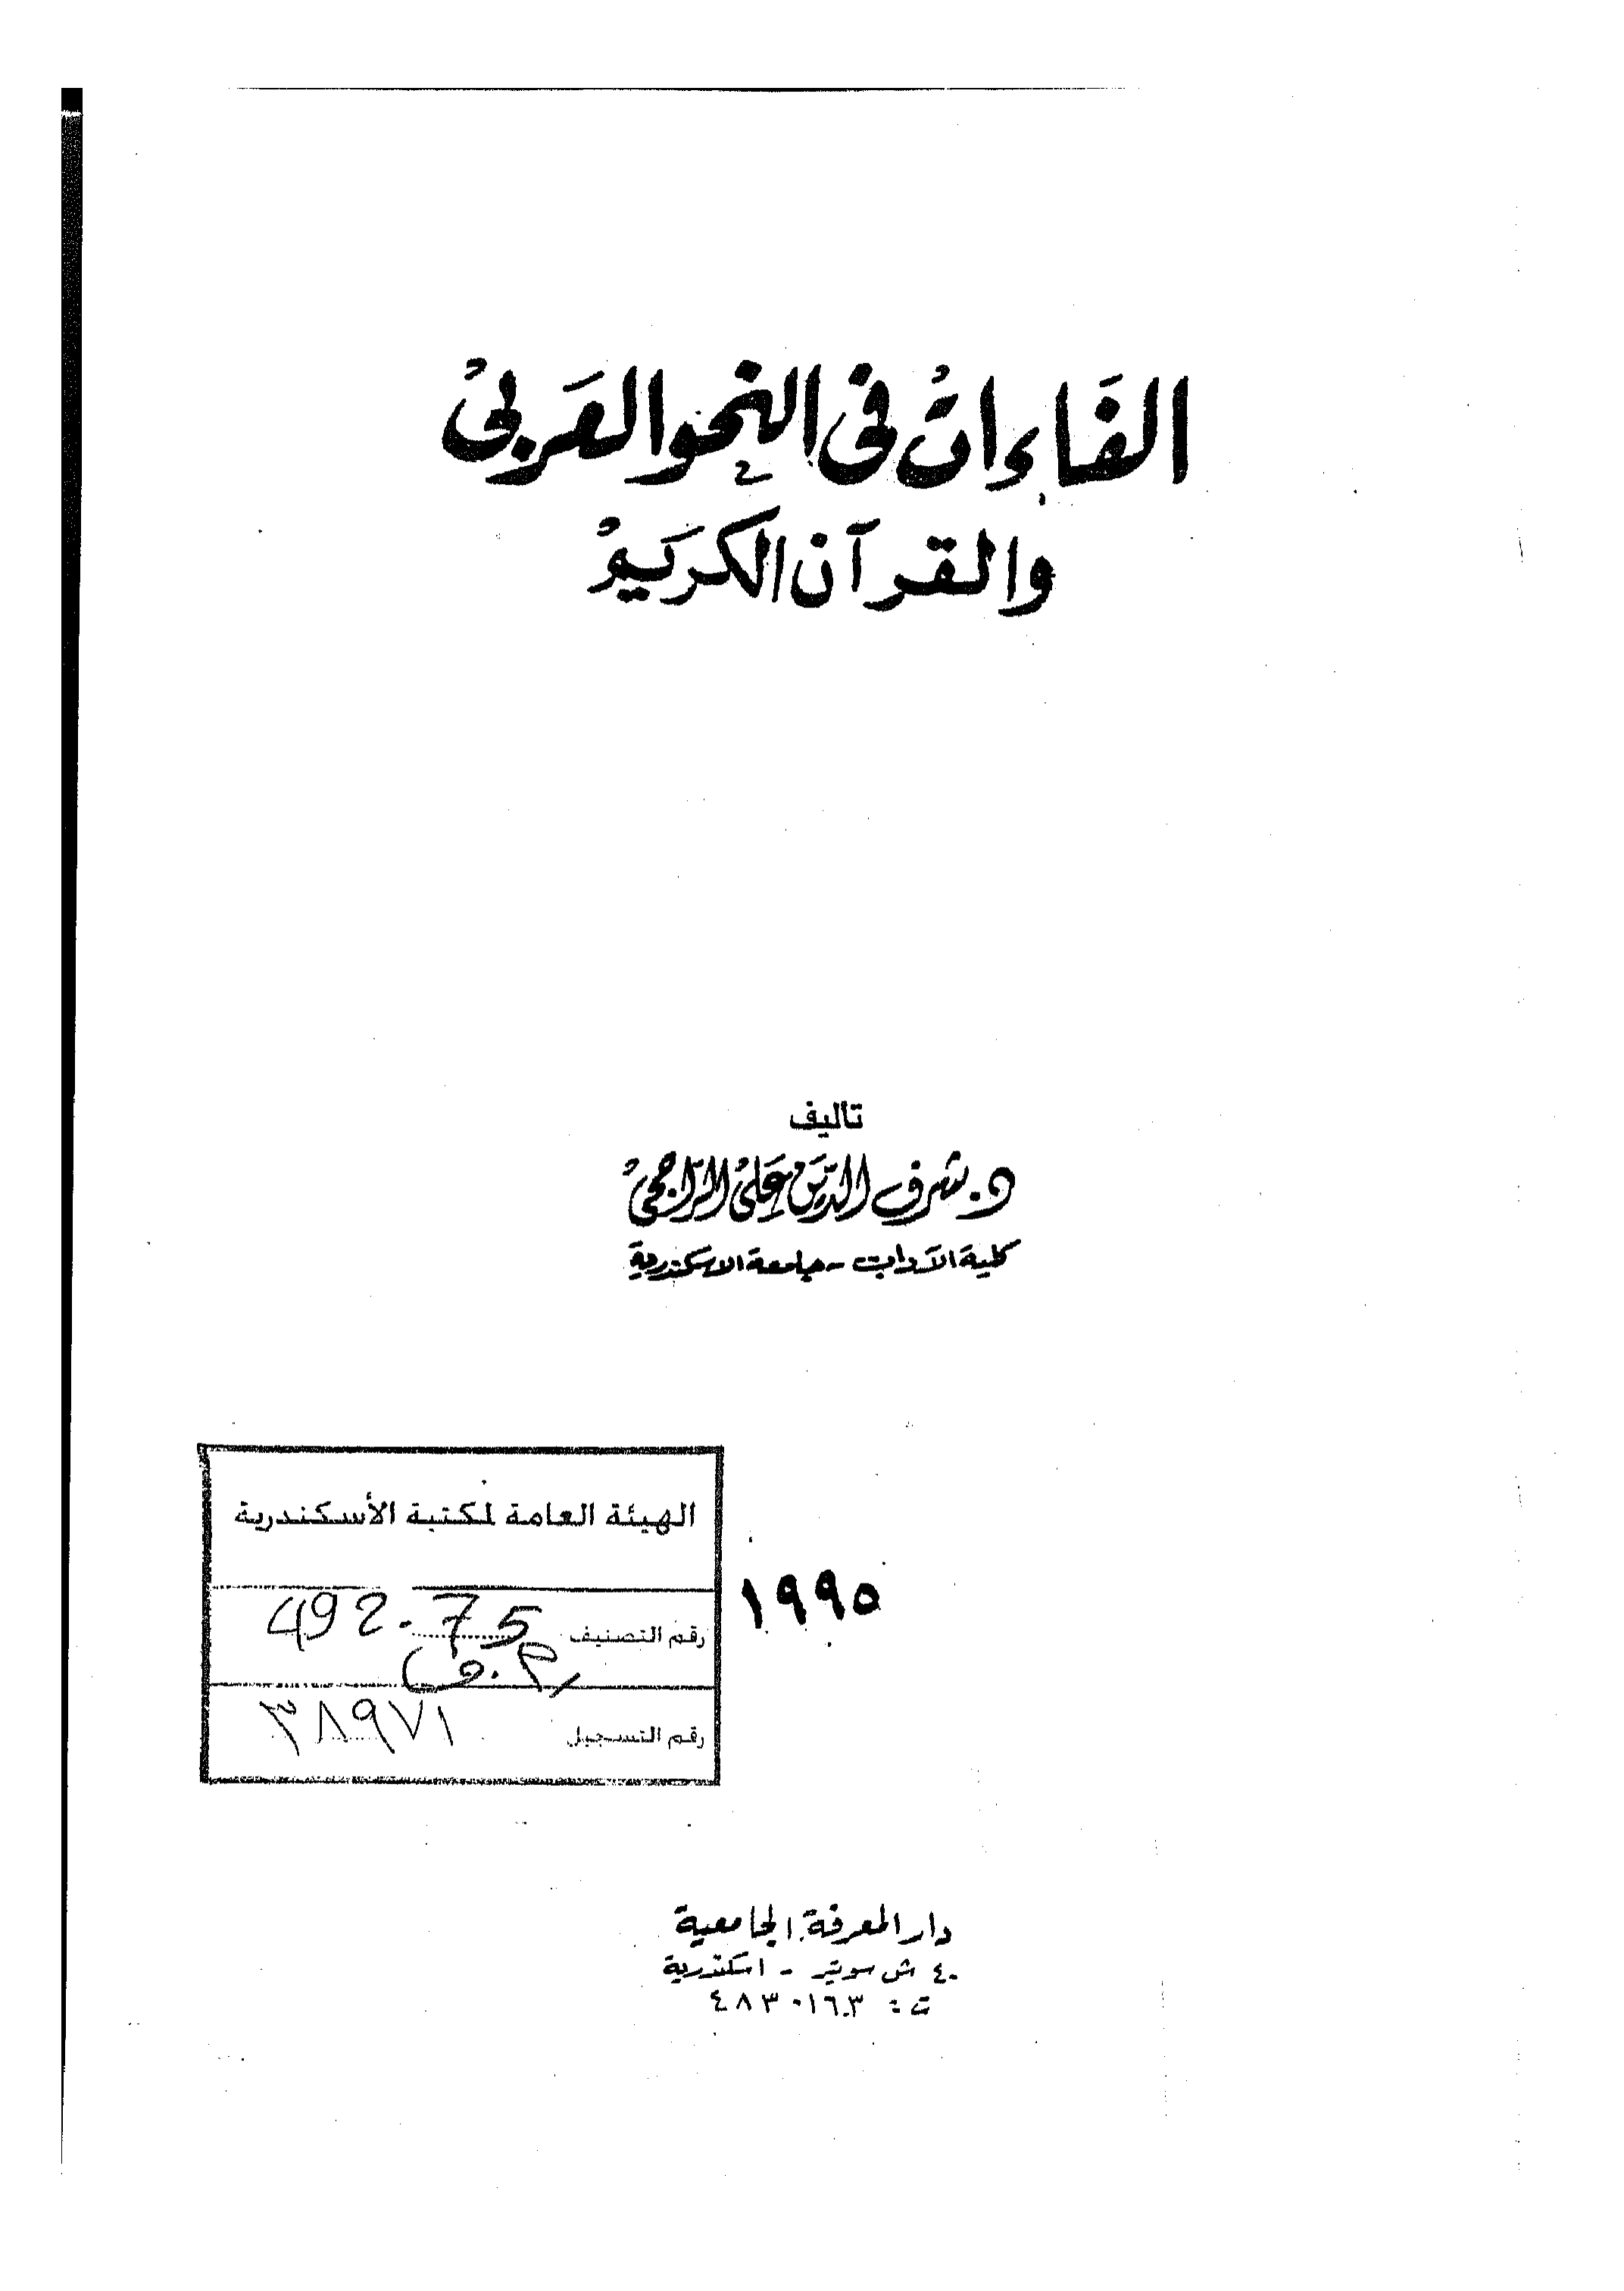 الفاءات فى النحو العربى
والقرآن الكريم
تأليف
د. شرف الدين على الراجحى
كلية الآداب - جامعة الاسكندرية
الهيئة العامة لمكتبة الأسكندرية
رقم التصنيف 492.75
رقم التسجيل ٣٨٩٧١
١٩٩٥
دار المعرفة الجامعية
٤٠ ش سوتير - اسكندرية
ت : ٤٨٣٠١٦٣